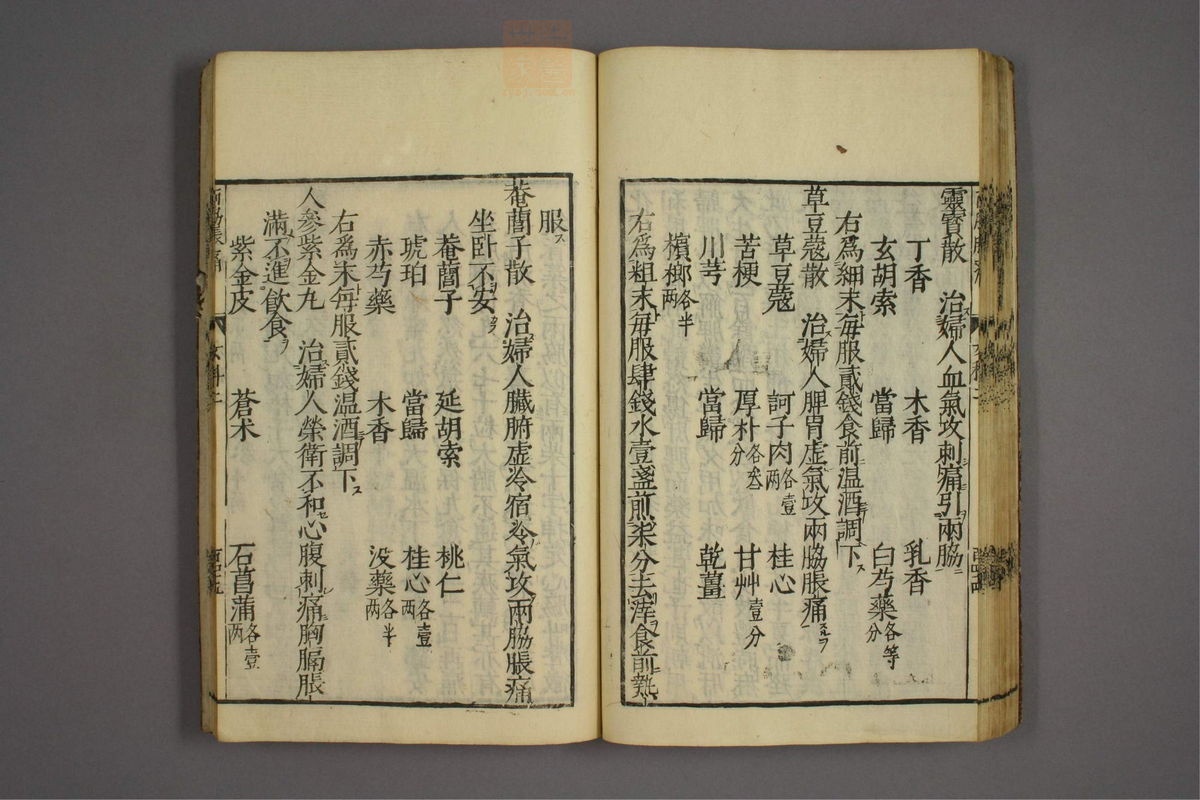 靈寶散　治婦人血氣攻刺痛引兩脇ニ
丁香　木香　乳香
玄胡索　當歸　白芍藥各等分
右爲細末毎服貳錢食前温酒調下ス
草豆蔻散　治婦人脾胃虚氣攻兩脇脹痛スルヲ
草豆蔻　訶子肉各壹两　桂心
苦梗　厚朴各叁分　甘艸壹分
川芎　當歸　乾薑
檳榔各半两
右爲粗末毎服肆錢水壹盞煎柒分去滓食前熱
服ス
菴䕡子散　治婦人臟腑虚冷宿冷氣攻兩脇脹痛
坐卧不安
菴䕡子　延胡索　桃仁
琥珀　當歸　桂心各壹两
赤芍藥　木香　没藥各半两
右爲末毎服貳錢温酒調下ス
人參紫金丸　治婦人榮衛不和心腹刺痛胸膈脹
滿不進飲食ヲ
紫金皮　蒼术　石菖蒲各壹两
女科二